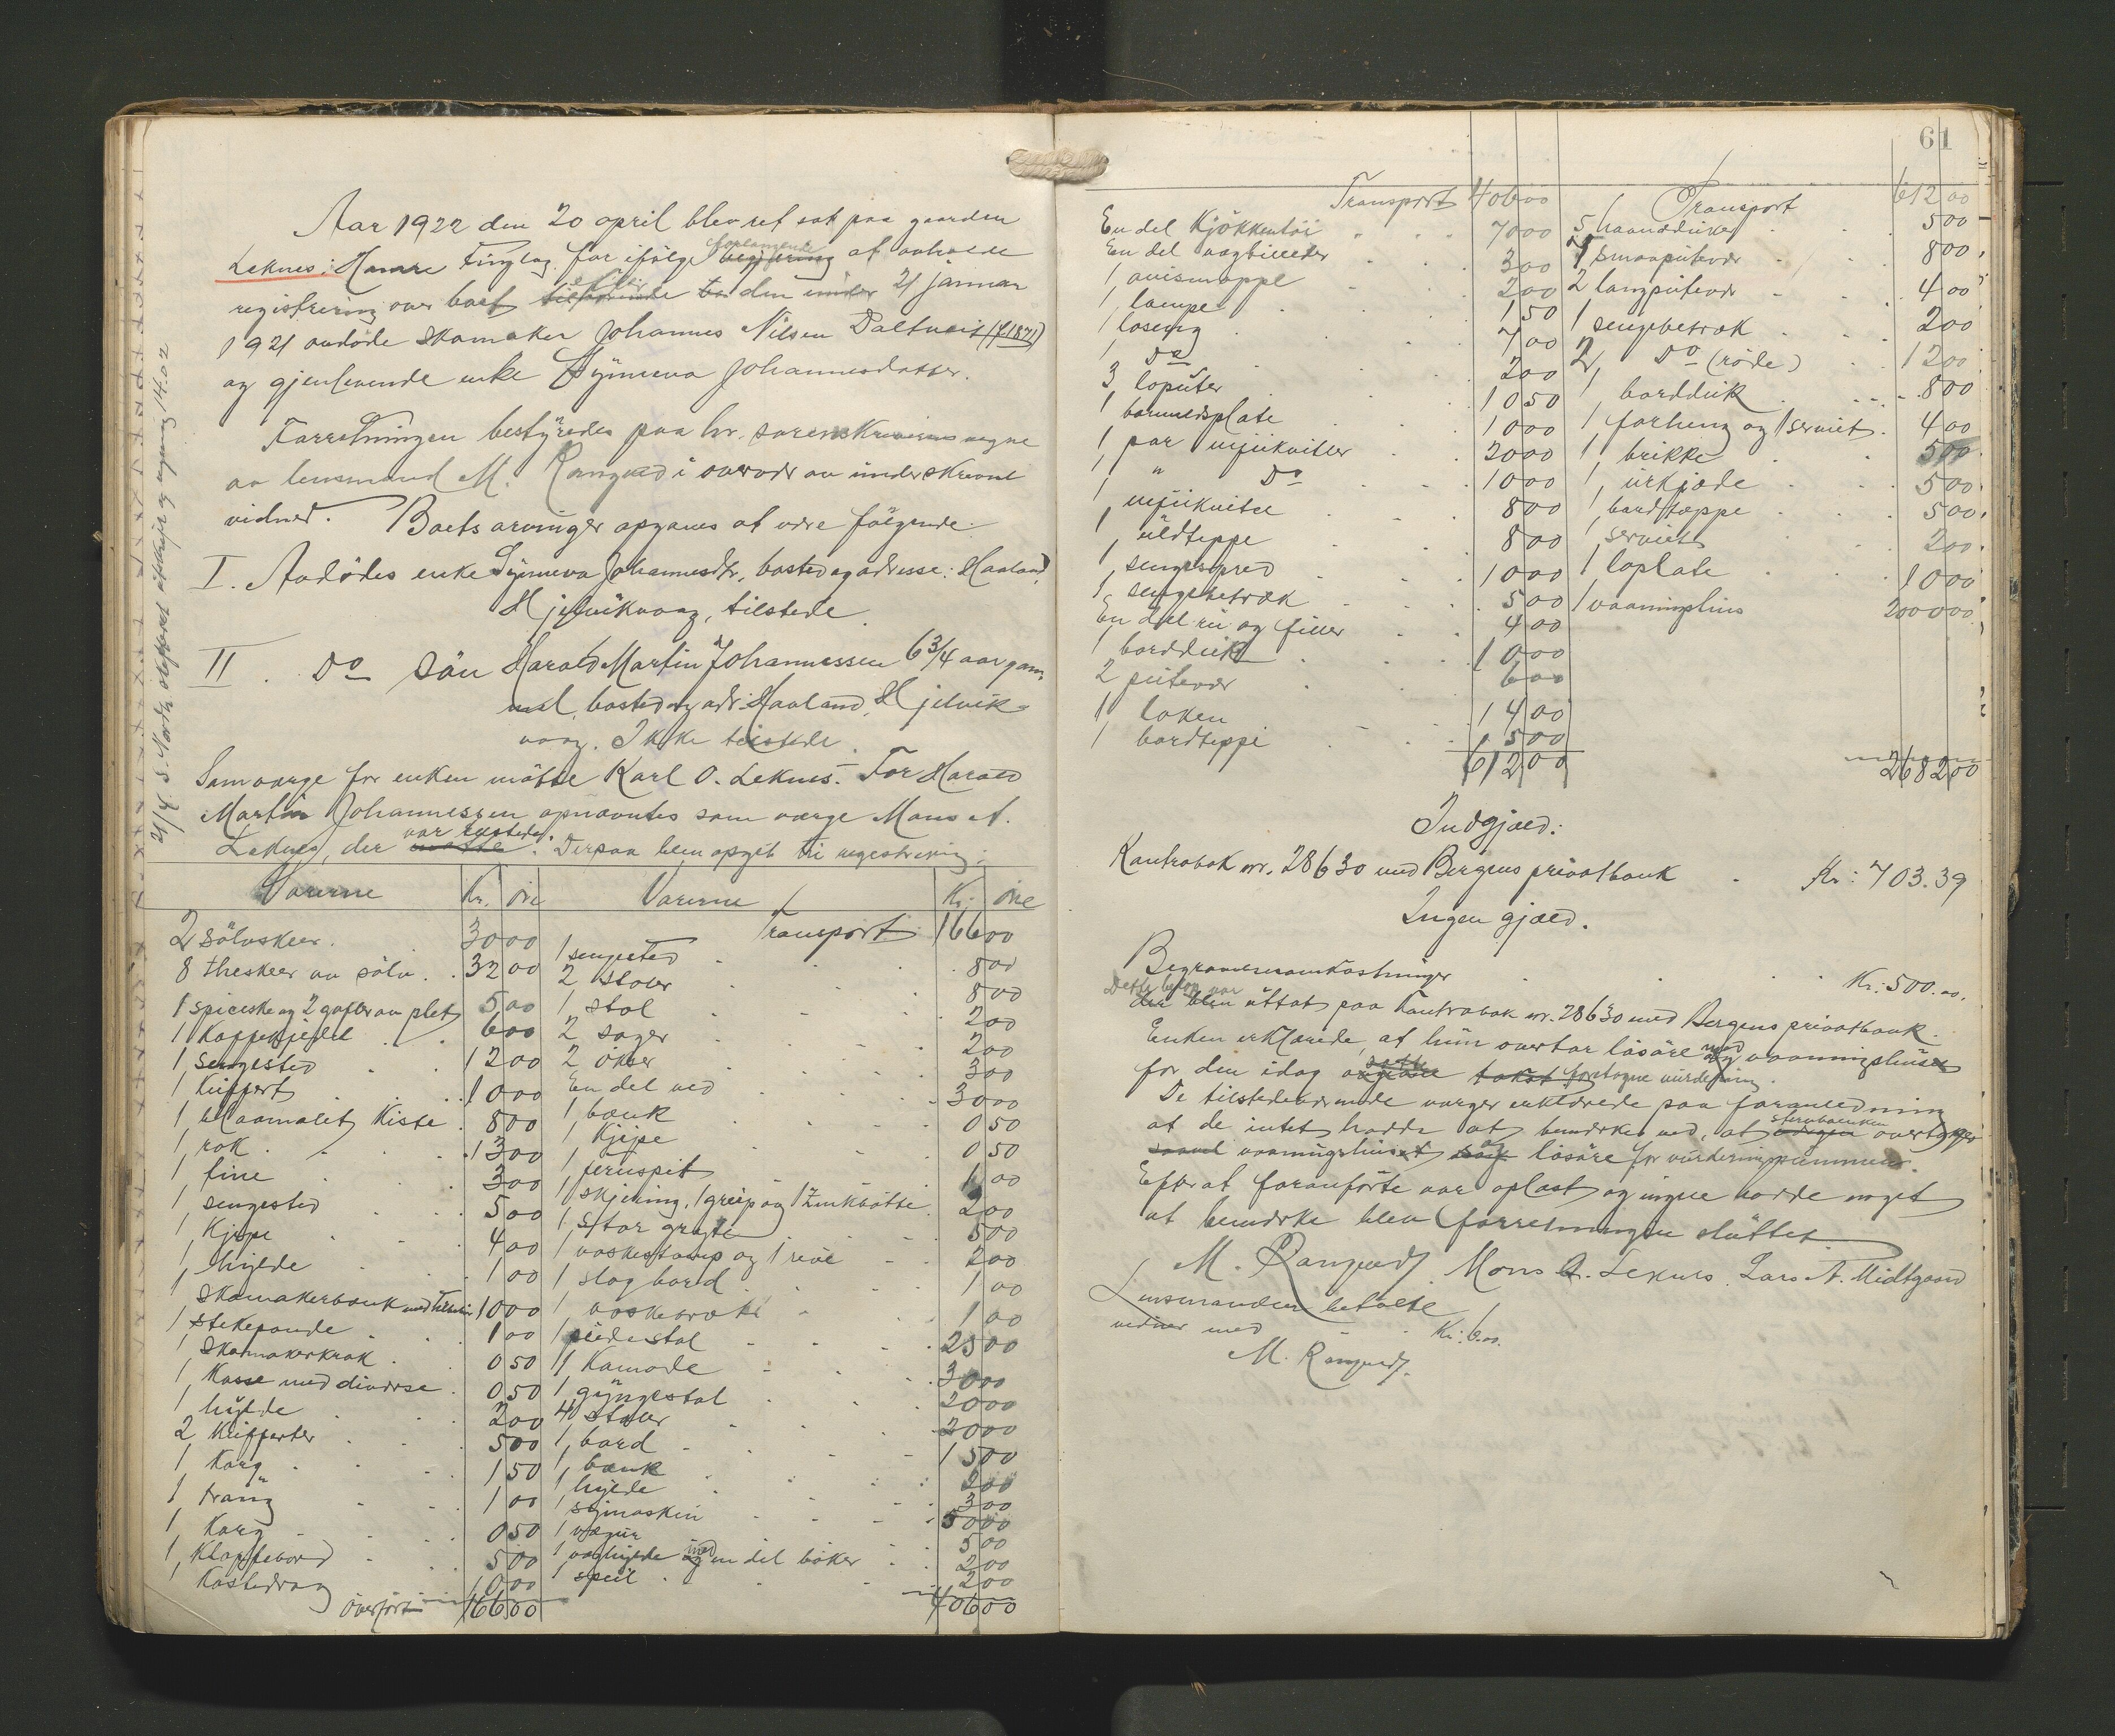 Aar 1922 den 20 april blev ret sat paa gaarden
Leknes i Hamre Tinglag for ifølge forlangende at avholde
registrering over boet efter den 21 januar
1921 avdøde skomaker Johannes Nilsen Daltveit (f. 1871)
og gjenlevende enke Synneva Johannesdatter.
Forretningen bestyredes paa hr. sorenskriverens vegne
av lensmand M. Rongved i overvær av underskrevne
vidner. Boets arvinger opgaves at være følgende:
I. Avdødes enke Synneva Johannesdtr., bosted og adresse: Haaland,
Hjelvikvaag, tilstede.
II. Do søn Harald Martin Johannessen 6 3/4 aar gam-
mel, bosted og adr. Haaland, Hjelvik-
vaag. Ikke tilstede.
Samværge for enken møtte Karl O. Leknes. – For Harald
Martin Johannessen opnævntes som værge Mons A.
Leknes, der var tilstede. Derpaa blev opgit til registrering:
21/4 14.02
Varerne Kr. Øre
2 sølvskeer. 30 00
8 theskeer av sølv 32 00
1 spiseske og 2 gafler av plet 5 00
1 kaffekjedel 6 00
1 sengested 12 00
1 kuffert 10 00
1 blaamalet kiste 8 00
1 rok 13 00
1 fine 3 00
1 sengested 5 00
1 kjipe 4 00
1 hylde 1 00
1 skomakerbænk med tilbehør 10 00
1 stekepande 1 00
1 skomakerkrak 0 50
1 kasse med diverse 0 50
1 hylde 2 00
2 kufferter 5 00
1 korg 1 50
1 traug 1 00
1 korg 0 50
1 klaffebord 5 00
1 kastedrag 10 00
Overført 166 00
Varerne Kr. Øre
Transport 166 00
1 sengested 8 00
2 stoler 8 00
1 stol 2 00
2 sager 2 00
2 økser 3 00
En del ved 30 00
1 bænk 0 50
1 kjipe 0 50
1 jernspit 1 00
1 skjæring, 1 greip og 1 zinkbøtte 2 00
1 stor gryte 5 00
1 vaskestamp og 1 rive 2 00
1 slagbord 1 00
1 vaskebræt 1 00
1 piedestal 25 00
1 komode 30 00
1 gyngestol 20 00
4 stoler 20 00
1 bord 15 00
1 bænk 2 00
1 hylde 3 00
1 symaskin 50 00
1 vægur 5 00
1 væghylde med en del bøker 2 00
1 speil 2 00
406 00
61
Transport 406 00
En del kjøkkentøi 70 00
En del vægbilleder 3 00
1 avismappe 2 00
1 lampe 1 50
1 løseng 7 00
1 Do 2 00
3 løputer 10 50
1 bommeldsplate 10 00
1 par uldkvitler 20 00
1 " Do 10 00
1 uldkvitel 8 00
1 uldteppe 8 00
1 sengespred 10 00
1 sengebetræk 5 00
En del ul og filler 4 00
1 borddug 10 00
2 putevær 6 00
1 laken 14 00
1 bordteppe 5 00
612 00
Transport 612 00
5 haandduker 5 00
smaaputevær 8 00
2 langputevær 4 00
1 sengebetræk 2 00
2 Do (røde) 12 00
1 bordduk 8 00
1 forheng og 1 serviet 4 00
1 brikke 5 00
1 urkjæde 5 00
1 bordteppe 5 00
1 serviet 2 00
1 loplate 10 00
1 vaaningshus 2000 00
2682 00
Indgjæld:
Kontrabok nr. 28630 med Bergens privatbank Kr: 703.39
Ingen gjæld.
Begravelsesomkostninger Kr: 500.00.
Dette beløp var
uttat paa kontrabok nr. 28630 med Bergens privatbank.
Enken erklærede, at hun overtar løsøre med vaaningshuset
for den idag satte foretagne vurdering.
De tilstedeværende værger erklærede paa foranledning
at de intet hadde at bemerke ved, at overtager
vaaningshuset og løsøre for vurderingssummen.
Efterat foranførte var oplæst og ingen hadde noget
at bemerke blev forretningen sluttet.
M. Rongved. Mons A. Leknes. Lars N. Midtgaard
Lensmanden betalte
vidner med Kr: 6.00.
M. Rongved.